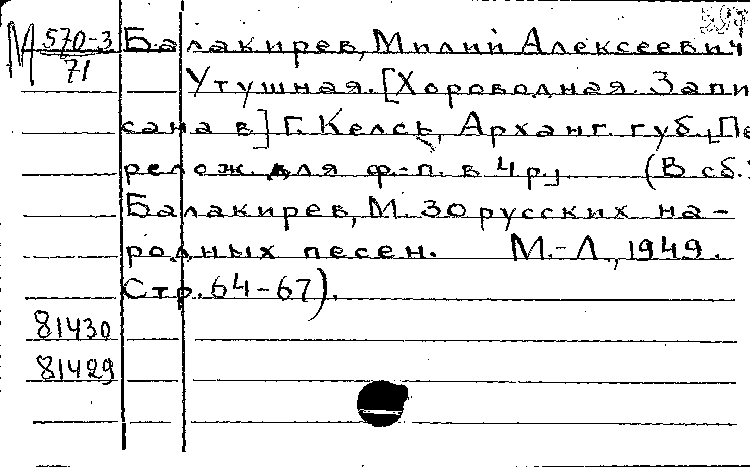 М 570-3 Балакирев, Милий Алексеевич
71 Утушная. [Хороводная. Запи
сана в] Г. Келсь, Арханг. губ. [Пе
релож. для ф.-п. в 4 р.] (В сб.:
Балакирев, М. 30 русских на-
родных песен. М.-Л., 1949.
Стр. 64-67).
81430
81429